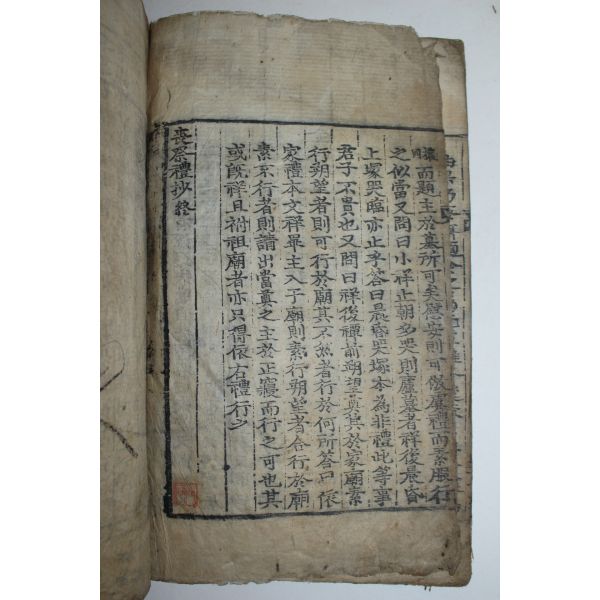 而題主於墓所可矣歸安則可倣虞禮而素服行
之似當又問曰小祥止朝夕哭則廬墓者祥後晨昏
上塚哭臨亦止乎答曰晨昏哭塚本為非禮此等事
君子不貴也又問曰祥後禫前朔望奠其於家廟素
行朔望者則可行於廟其不然者行於何所答曰依
家禮本文祥畢主入于廟則素行朔望者合行於廟
素不行者則請出當奠之主於正寢而行之可也其
或旣祥且祔祖廟者亦只得依右禮行之
喪祭禮抄終